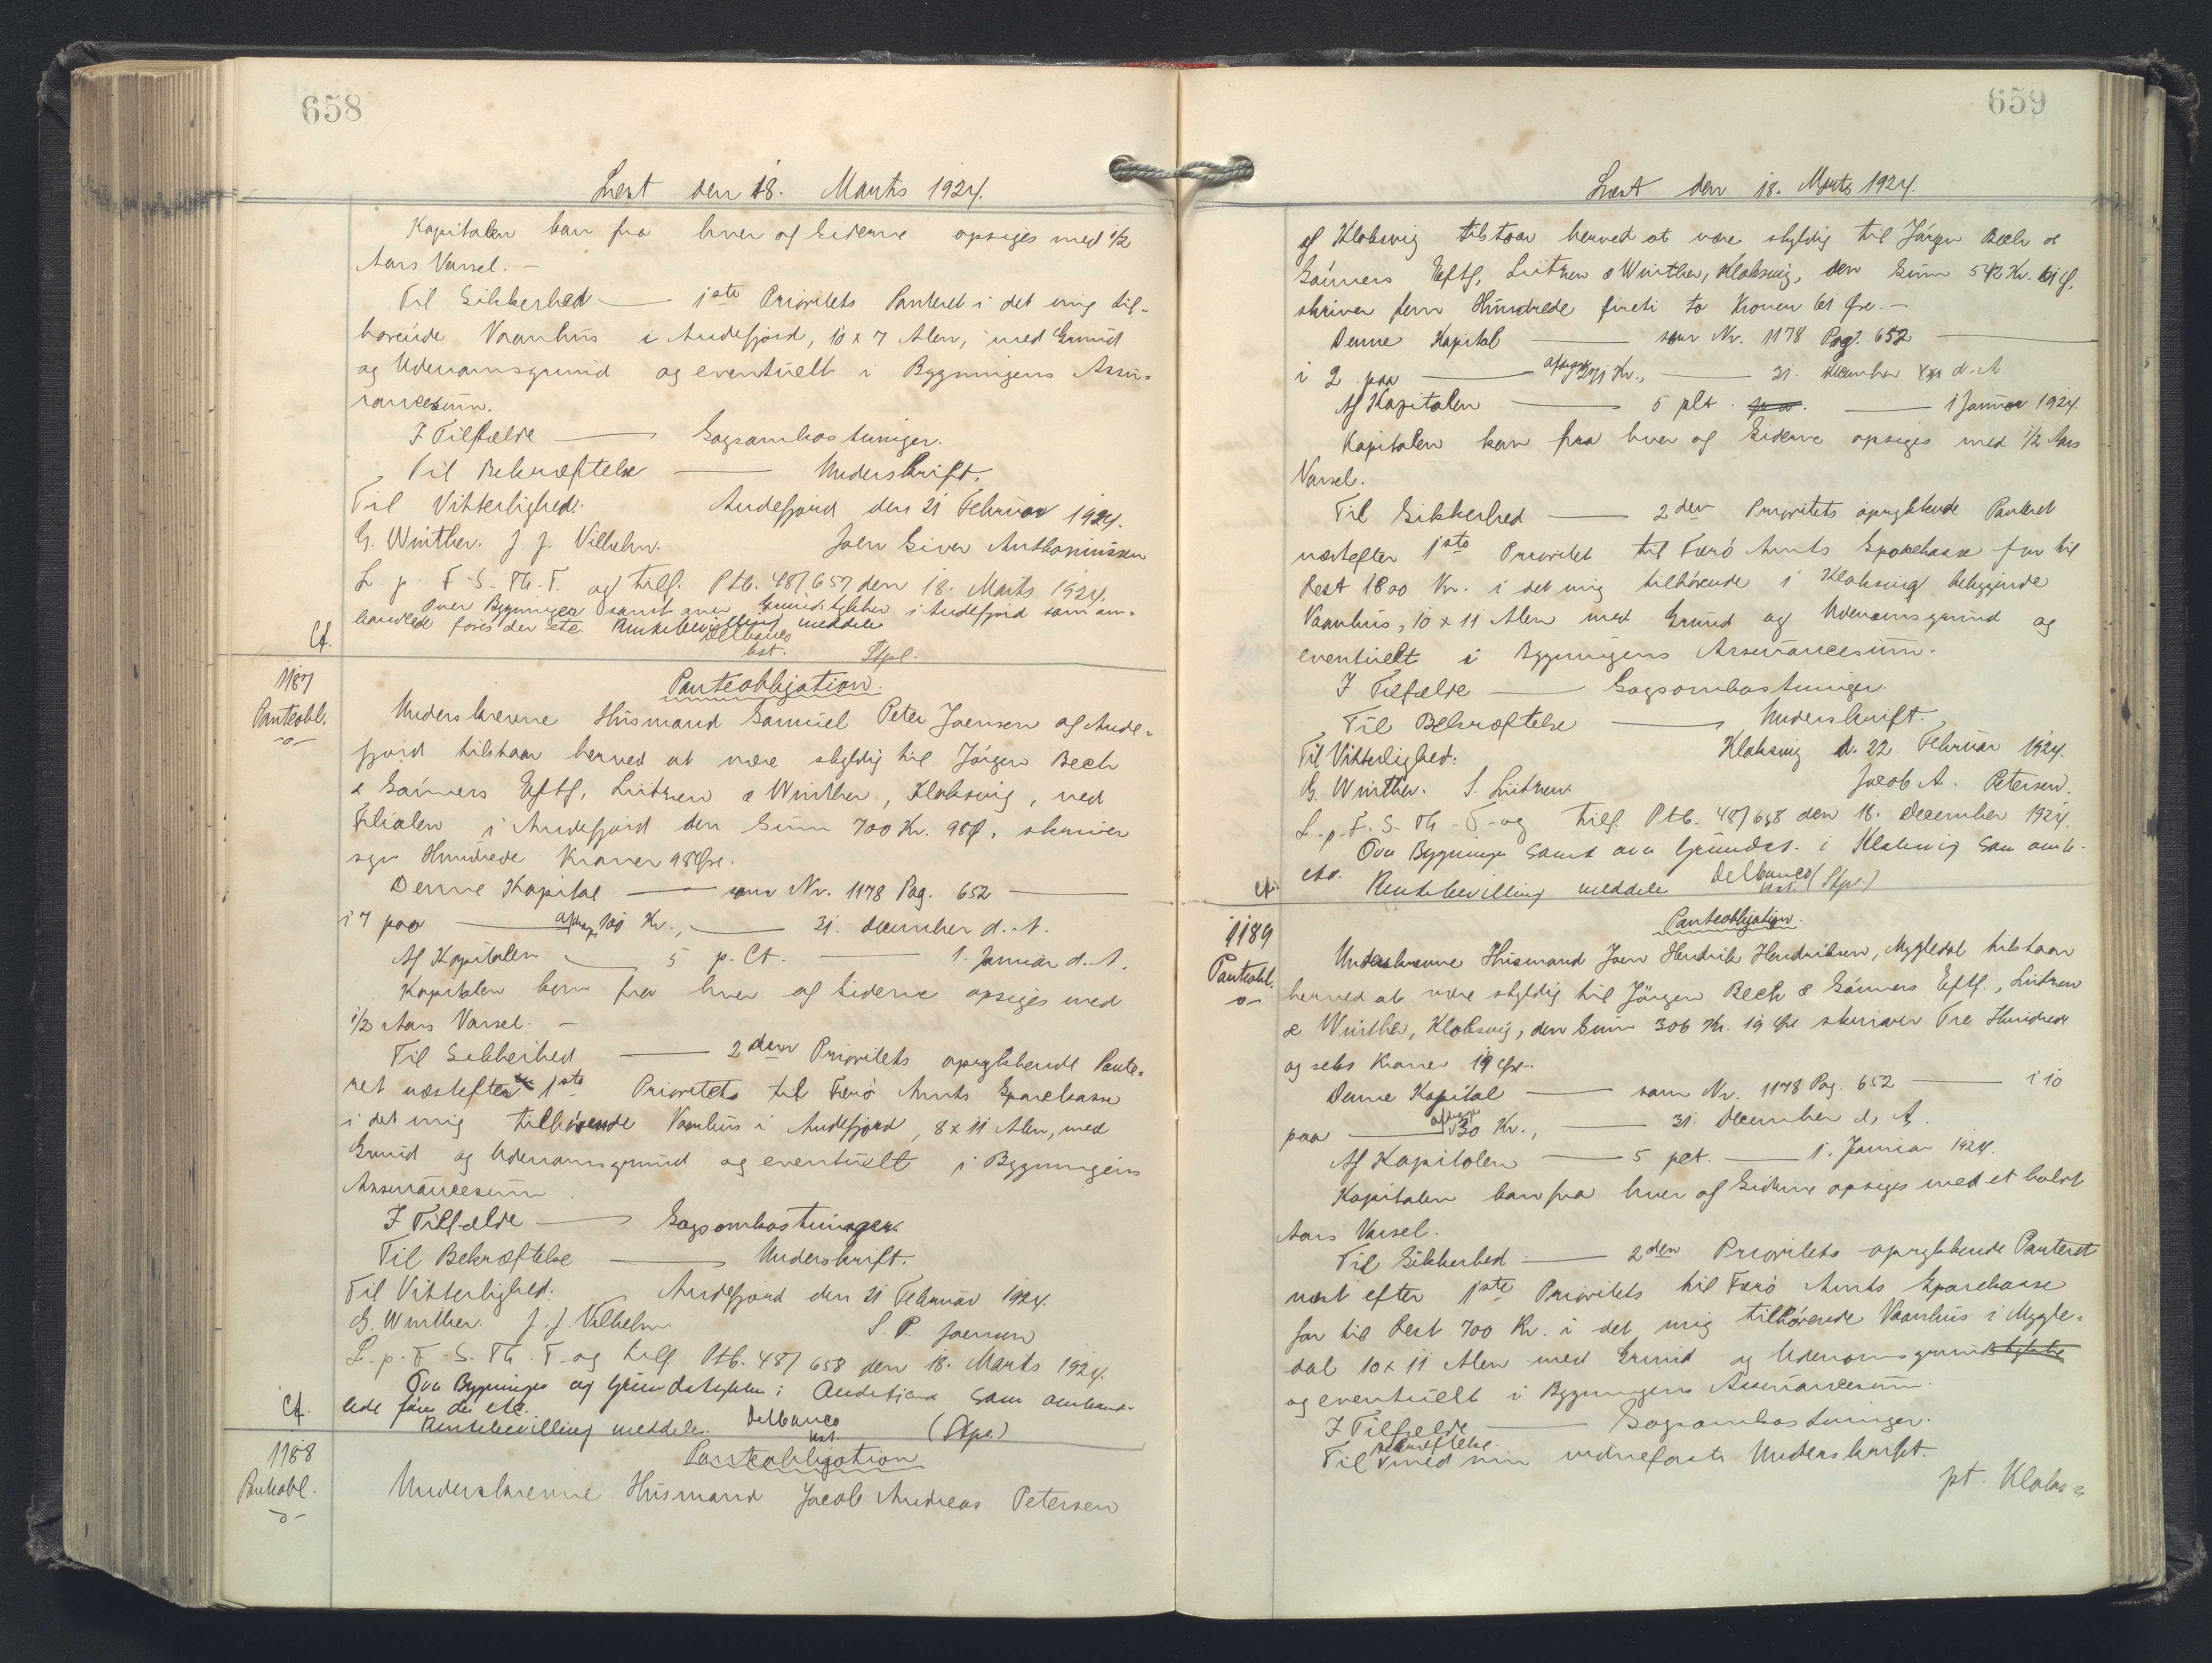 658
Læst den 18. Marts 1924.
Kapitalen kan fra hver af Siderne opsiges med 1/2
Aars Varsel. -
Til Sikkerhed — 1ste Prioritets Panteret i det mig til-
hørende Vaanhus i Andefjord, 10 x 7 Alen, med Grund
og Udenomsgrund og eventuelt i Bygningens Assu-
rancesum.
I Tilfælde — Sagsomkostninger.
Til Bekræftelse — Underskrift.
Til Vitterlighed: Andefjord den 21 Februar 1924.
G. Winther. J. J. Vilhelm. Joen Siver Anthoniussen
L. p. F. S. Th. T. og tilf. Ptb. 48/657 den 18. Marts 1924.
over Bygningen samt over Grundstykker i Andefjord som om-
handlede føres der etc. Rentebevilling meddeles
Delbanco
kst. Stpl.
Cf.
1187
Panteobl.
-o-
Panteobligation.
Underskrevne Husmand Samuel Peter Joensen af Ande-
fjord tilstaar herved at være skyldig til Jørgen Bech
& Sønners Eftf, Lützen & Winther, Klaksvig, ved
Filialen i Andefjord den Sum 700 Kr. 98 Ø, skriver
syv Hundrede Kroner 98 Øre.
Denne Kapital — som Nr. 1178 Pag. 652 —
i 7 paa — afdrag 100 Kr., — 31. December d. A.
Af Kapitalen — 5 p. Ct. — 1. Januar d. A.
Kapitalen kan fra hver af Siderne opsiges med
1/2 Aars Varsel. -
Til Sikkerhed — 2den Prioritets oprykkende Pante-
ret næstefter 1ste Prioritets til Færø Amts Sparekasse
i det mig tilhørende Vaanhus i Andefjord, 8 x 11 Alen, med
Grund og Udenomsgrund og eventuelt i Bygningens
Assurancesum
I Tilfælde — Sagsomkostninger.
Til Bekræftelse — Underskrift.
Til Vitterlighed: Andefjord den 21 Februar 1924.
G. Winther. J. J. Vilhelm S. P. Joensen
L. p. F. S. Th. T. og tilf. Ptb. 48/658 den 18. Marts 1924.
Over Bygningen og Grundstykker i Andefjord som omhand-
lede føres der etc.
Rentebevilling meddeles. Delbanco
kst. (Stpl)
Cf.
1188
Panteobl.
-o-
Panteobligation
Underskrevne Husmand Jacob Andreas Petersen
659
Læst den 18. Marts 1924.
af Klaksvig tilstaar herved at være skyldig til Jørgen Bech &
Sønners Eftf, Lützen & Winther, Klaksvig, den Sum 542 Kr. 61 Ø,
skriver fem Hundrede firti to Kroner 61 Øre. -
Denne Kapital — som Nr. 1178 Pag. 652 —
i 2 paa — afdrag 271 Kr., — 31. December d. A.
Af Kapitalen — 5 pct. — 1 Januar 1924.
Kapitalen kan fraa hver af Siderne opsiges med 1/2 Aars
Varsel.
Til Sikkerhed — 2den Prioritets oprykkende Panteret
næstefter 1ste Prioritet til Færø Amts Sparekasse for til
Rest 1800 Kr. i det mig tilhørende i Klaksvig beliggende
Vaanhus, 10 x 11 Alen med Grund og Udenomsgrund og
eventuelt i Bygningens Assurancesum.
I Tilfælde — Sagsomkostninger.
Til Bekræftelse — Underskrift.
Til Vitterlighed: Klaksvig d. 22. Februar 1924.
G. Winther. S. Lützen. Jacob A. Petersen.
L. p. F. S. Th. T. og tilf. Ptb. 48/658 den 18. December 1924.
Over Bygningen samt over Grundst. i Klaksvig som omh.
etc.
Rentebevilling meddeles Delbanco (Stpl)
kst.
Cf.
1189
Panteobl.
-o-
Panteobligation.
Underskrevne Husmand Joen Hendrik Hendriksen, Mygledal tilstaar
herved at være skyldig til Jörgen Bech & Sønners Eftf., Lützen
& Winther, Klaksvig, den Sum 306 Kr. 19 Øre skriver Tre Hundrede
og seks Kroner 19 Øre.
Denne Kapital — som Nr. 1178 Pag. 652 — i 10
paa — afdrag 30 Kr., — 31. December d. A.
Af Kapitalen — 5 pct. — 1. Januar 1924.
Kapitalen kan fra hver af Siderne opsiges med et halvt
Aars Varsel.
Til Sikkerhed — 2den Prioritets oprykkende Panteret
næst efter 1ste Prioritets til Færø Amts Sparekasse
for til Rest 700 Kr. i det mig tilhørende Vaanhus i Mygle-
dal 10 x 11 Alen med Grund og Udenomsgrund
og eventuelt i Bygningens Assurancesum.
I Tilfælde — Sagsomkostninger.
Til Bekræftelse med min vidnefaste Underskrift.
pt. Klaks-